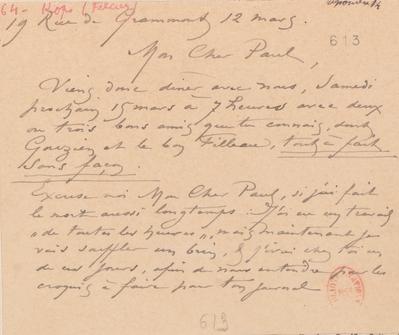 64 - Rops (Félicien)
19 Rue de Grammont 12 mars.
613
Mon Cher Paul,
Viens donc diner avec nous, Samedi
prochain 15 mars à 7 heures avec deux
ou trois bons amis que tu connais, dont
Gouzien et le bon Filleau, tout à fait
sans façon.
Excuse moi Mon Cher Paul, si j'ai fait
le mort aussi longtemps : J'ai eu un travail
"de toutes les heures", mais maintenant je
vais souffler un brin, & j'irai chez toi un
de ces jours, afin de nous entendre pour les
croquis à faire pour ton journal
613